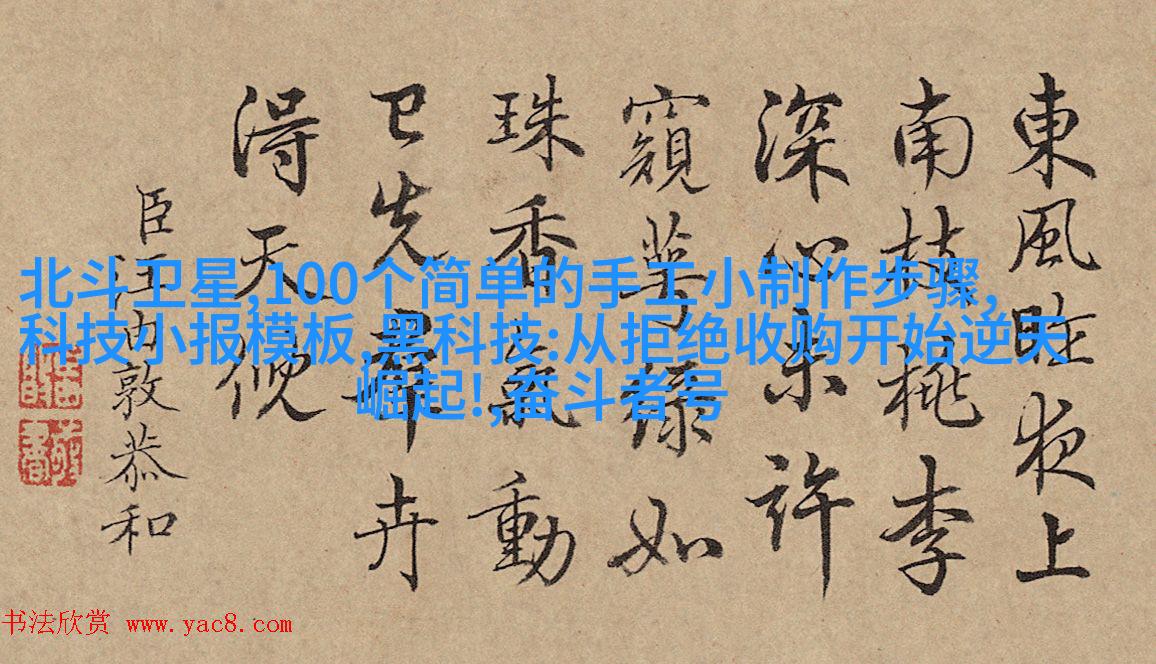 東風昨夜上
南枝桃李
深心未許
窺萼綠如
珠香氣動
已先羣卉
得天倪
臣汪由敦恭和
北斗卫星,100个简单的手工小制作步骤,
科技小报模板,黑科技:从拒绝收购开始逆天
崛起!,奋斗者号
书法欣赏 www.yac8.com